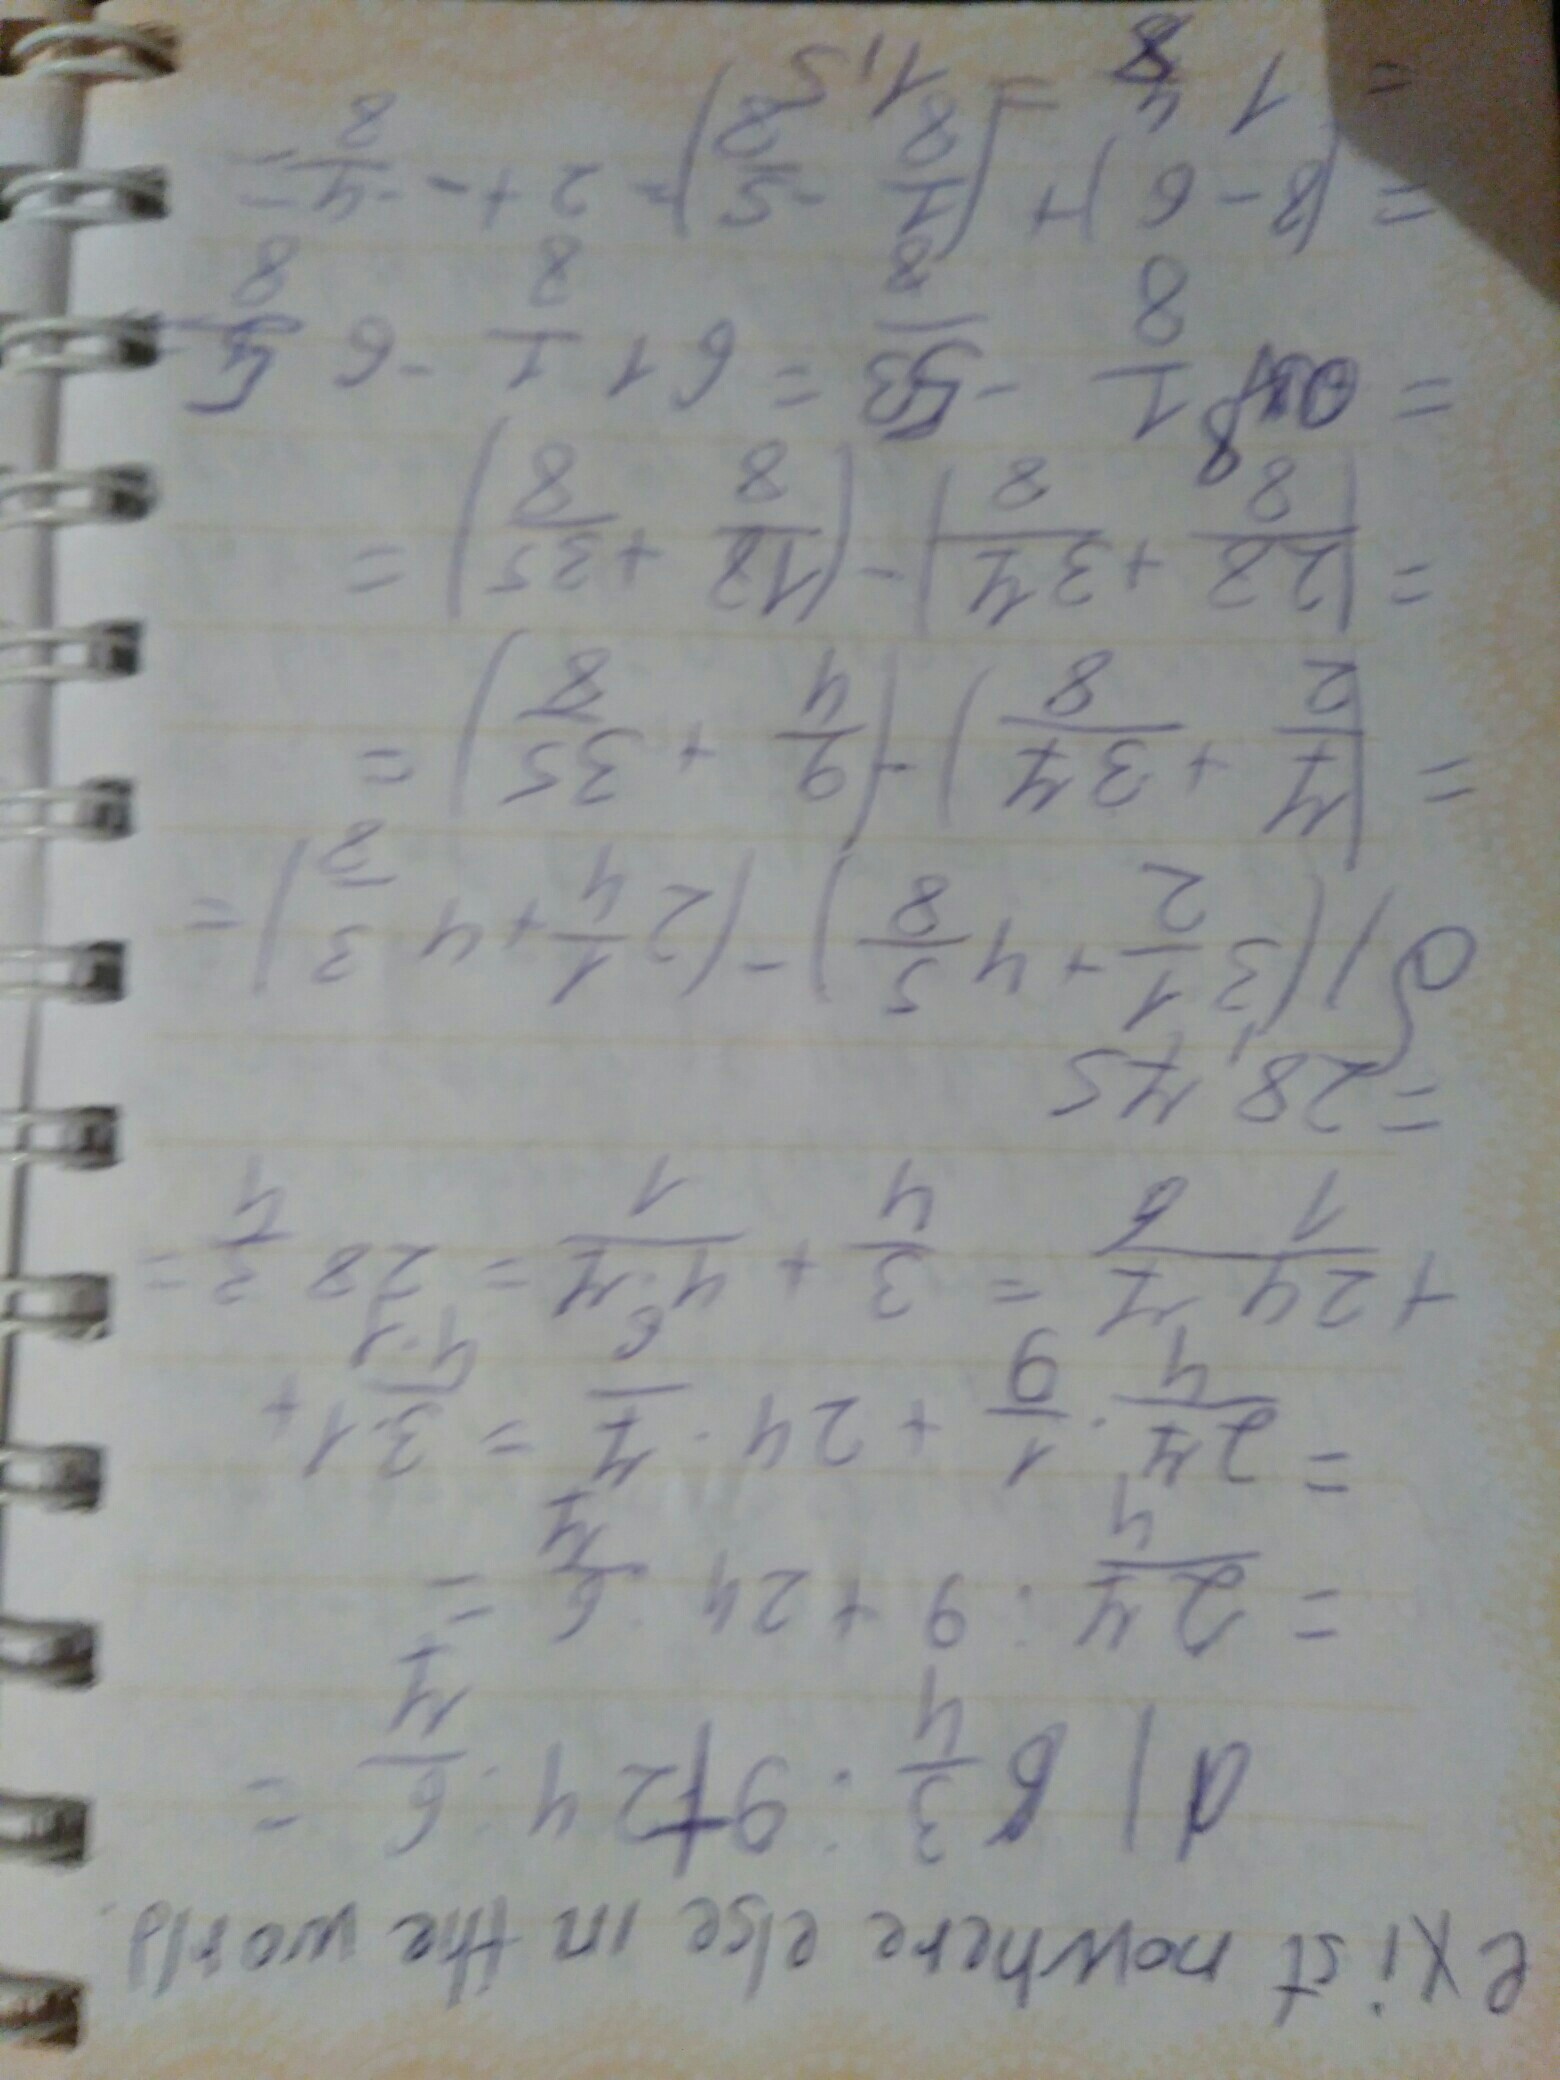 exist nowhere else in the world.
a) 6 3/4 : 9 + 24 : 6/7 =
= 27/4 : 9 + 24 : 6/7 =
= 27/4 · 1/9 + 24 · 7/6 = 3·1/4·1 +
+ 24/1 7/6 = 3/4 + 4·7/1 = 28 3/4 =
= 28,75
б) (3 1/2 + 4 5/8) - (2 1/4 + 4 3/8) =
= (7/2 + 37/8) - (9/4 + 35/8) =
= (28/8 + 37/8) - (18/8 + 35/8) =
= 8 1/8 - 53/8 = 61 1/8 - 6 5/8
= (8-6) + (1/8 - 5/8) = 2 + - 4/8 =
= 1 4/8 = 1,5